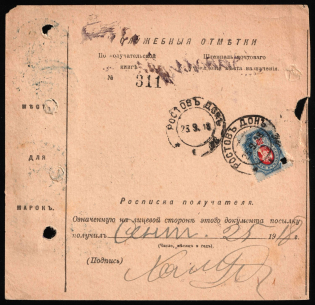 СЛУЖЕБНЫЯ ОТМѢТКИ
По получательской
книгѣ
мѣста назначенія.
№ 311
РОСТОВЪ ДОНЪ
25.9.18
РОСТОВЪ ДОНЪ
МѢСТО
ДЛЯ
МАРОКЪ.
Росписка получателя.
Означенную на лицевой сторонѣ этого документа посылку
получилъ Сент. 25 1918 г.
(Число, мѣсяцъ и годъ).
(Подпись)